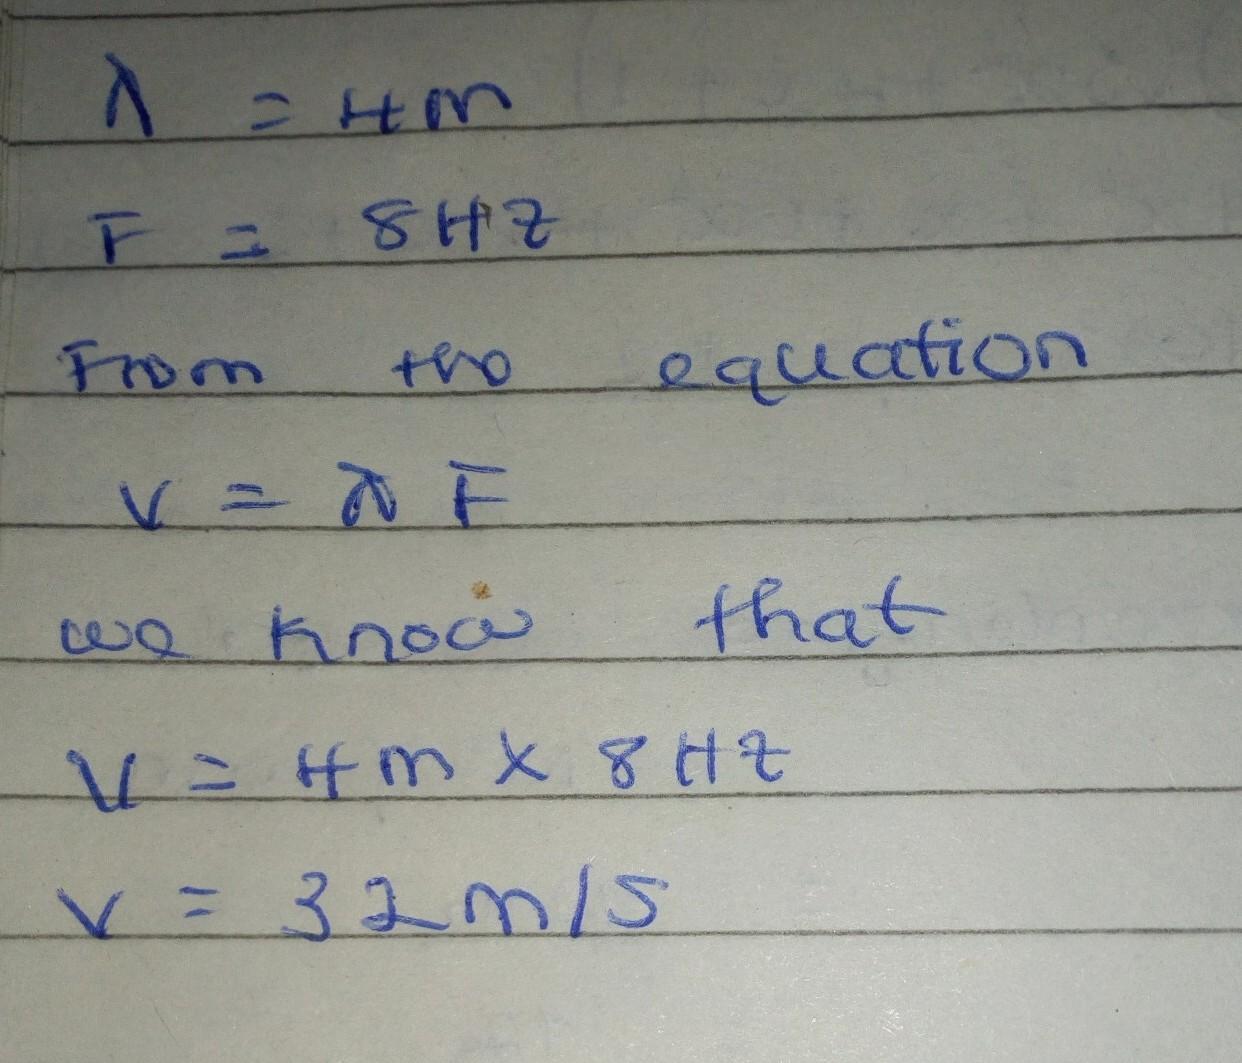 λ = 4m
F = 8Hz
From the equation
V = λ F
we know that
V = 4m x 8Hz
V = 32m/s